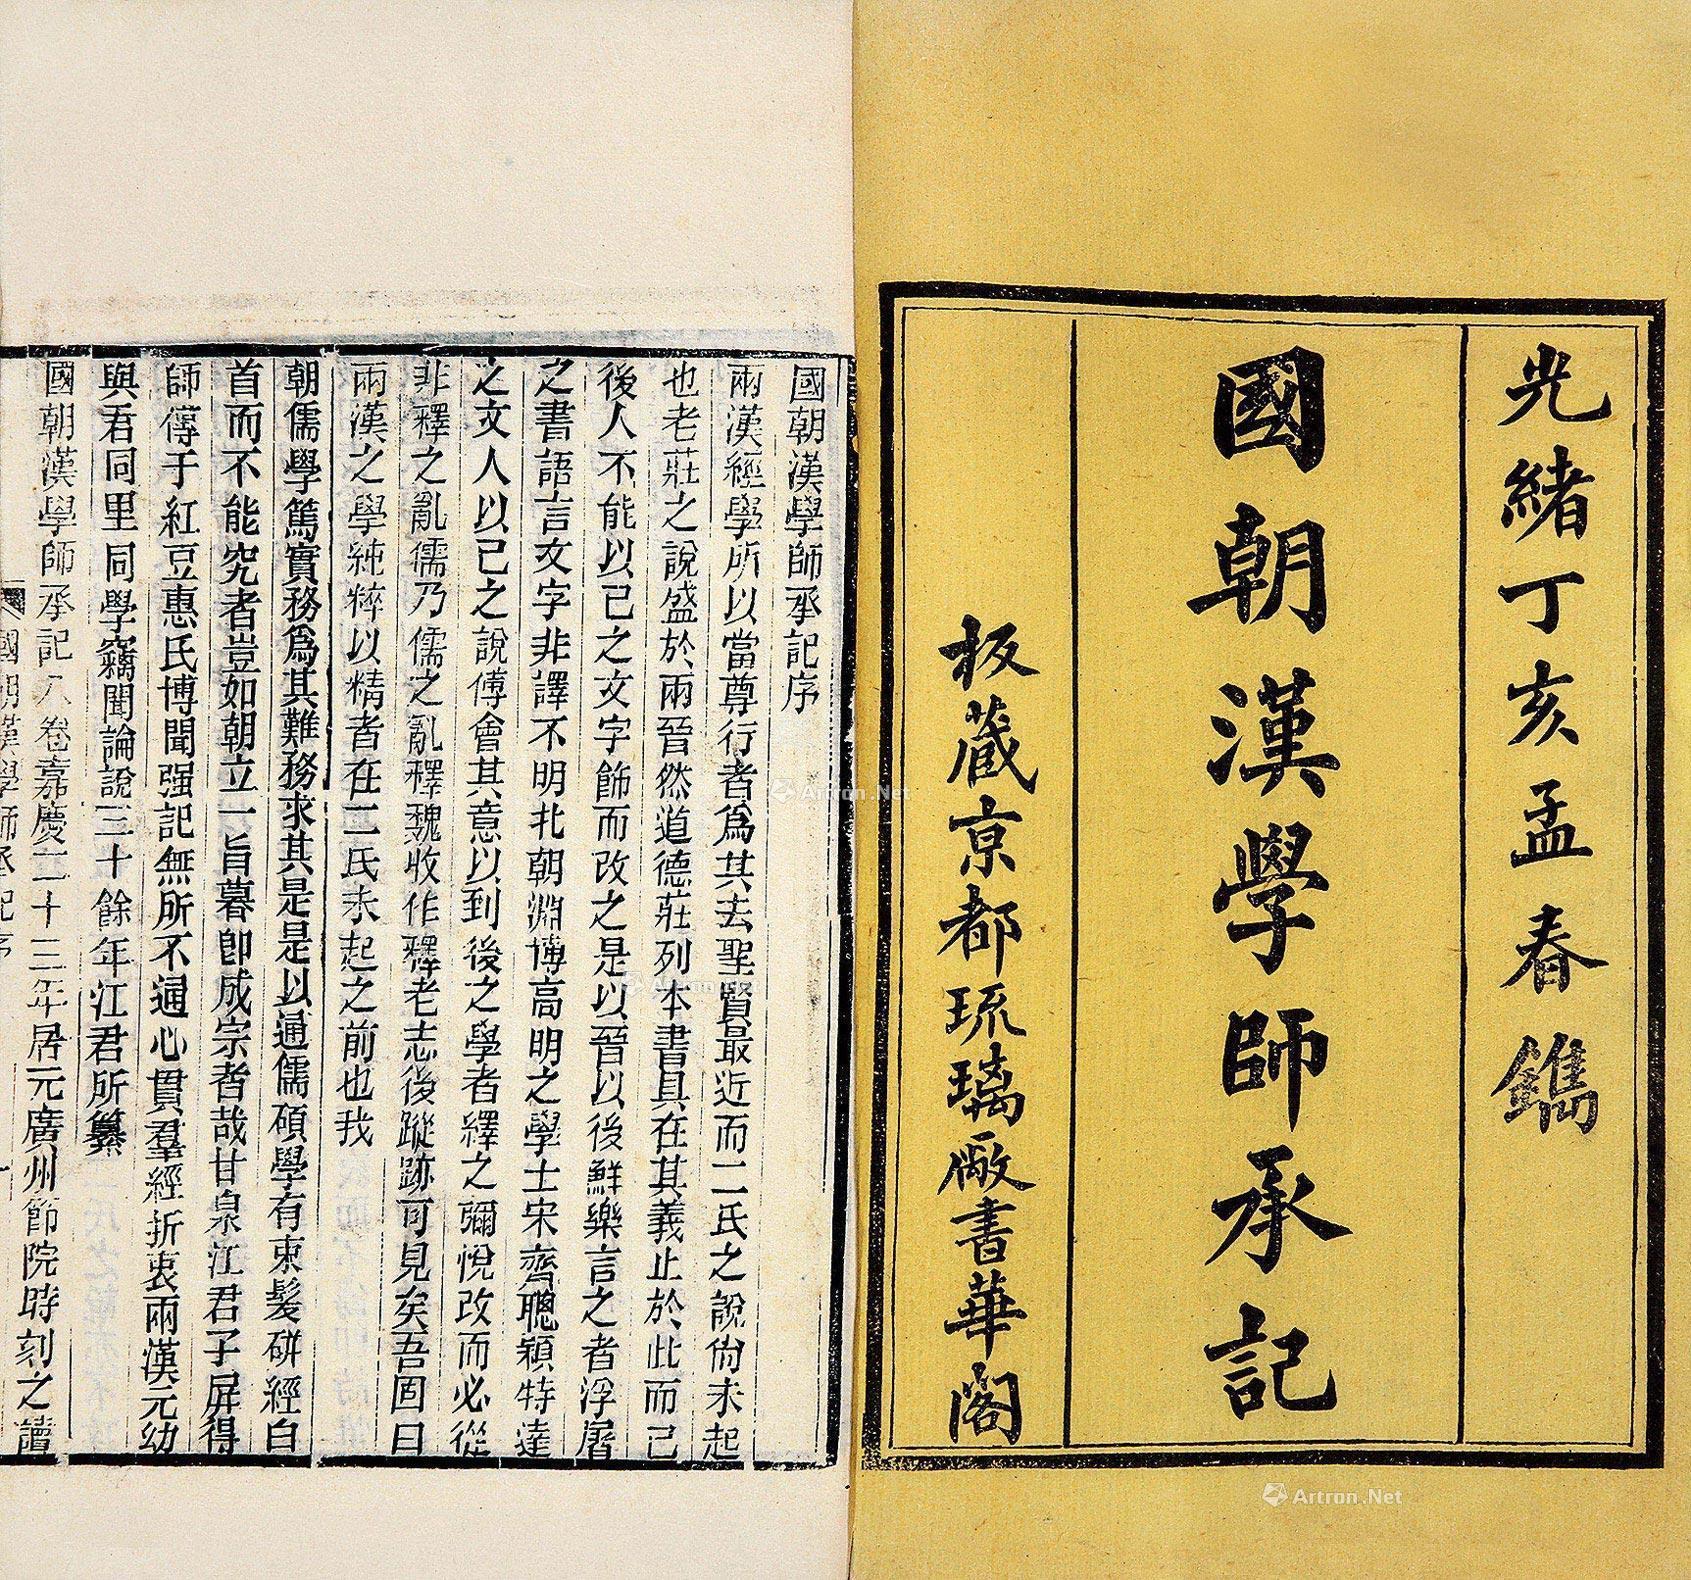 光緒丁亥孟春鐫
國朝漢學師承記
板藏京都琉璃廠書華閣
國朝漢學師承記序
兩漢經學所以當尊行者爲其去聖賢最近而二氏之說尙未起
也老莊之說盛於兩晉然道德莊列本書具在其義止於此而已
後人不能以已之文字飾而改之是以晉以後鮮樂言之者浮屠
之書語言文字非譯不明北朝淵博高明之學士宋齊聰穎特達
之文人以已之說傅會其意以到後之學者繹之彌悅改而必從
非釋之亂儒乃儒之亂釋魏收作釋老志後蹤跡可見矣吾固曰
兩漢之學純粹以精者在二氏未起之前也我
朝儒學篤實務爲其難務求其是是以通儒碩學有束髮硏經白
首而不能究者豈如朝立一旨暮卽成宗者哉甘泉江君子屛得
師傳于紅豆惠氏博聞强記無所不通心貫羣經折衷兩漢元幼
與君同里同學竊聞論說三十餘年江君所纂
國朝漢學師承記八卷嘉慶二十三年居元廣州節院時刻之讀
國朝漢學師承記序
Artron.Net
Artron.Net